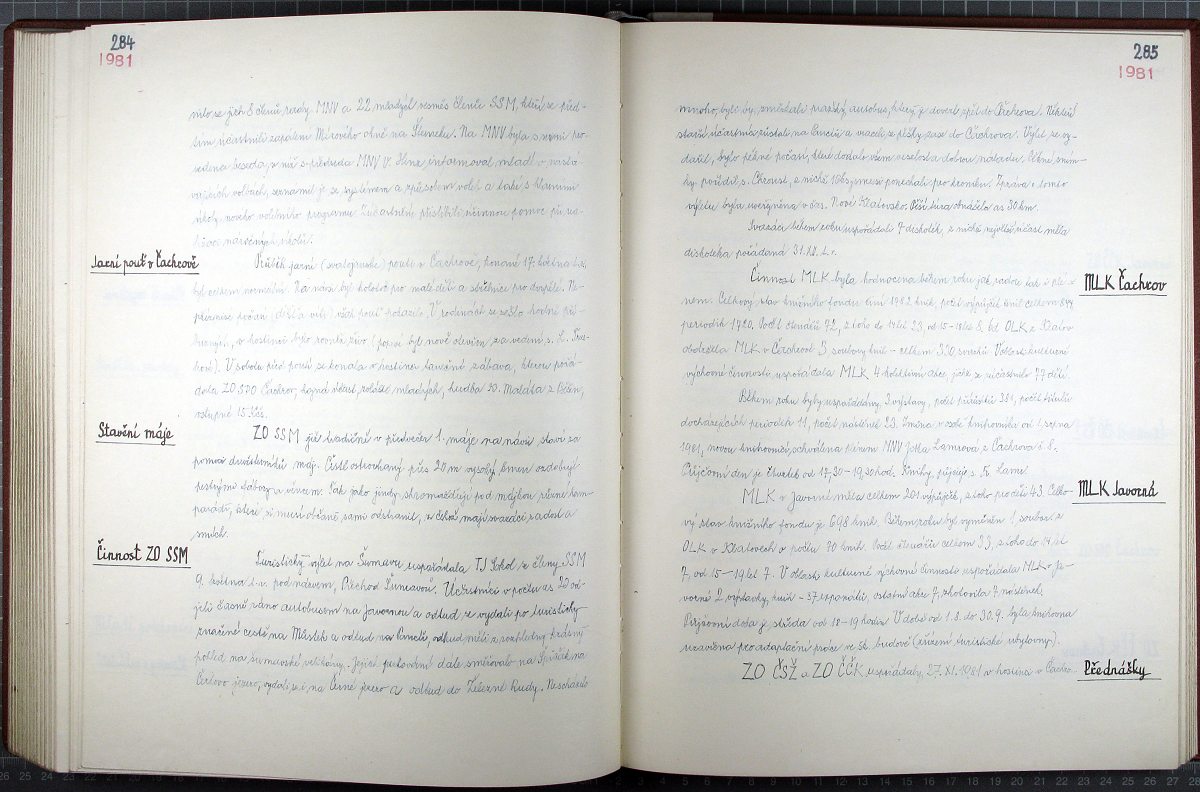 284
1981
nilo se jich 8 členů rady MNV a 22 mladých vesměs členů SSM, kteří se před-
tím účastnili zapálení Mírového ohně na Šumavě. Na MNV byla s nimi pro-
vedena beseda, v níž s. předseda MNV V. informoval mladé o nastá-
vajících volbách, seznámil je se systémem a způsobem voleb a také s hlavními
úkoly nového volebního programu. Zúčastnění přislíbili účinnou pomoc při za-
náročných úkolů.
Jarní pouť v Čachrově
Průběh jarní (svatojanské) pouti v Čachrově, konané 17. května t.r.
byl celkem normální. Na návsi byl kolotoč pro malé děti a střelnice pro dospělé. Ne-
příznivé počasí (déšť a vítr) však pouť pokazilo. V rodinách se sešlo hodně pří-
buzných, v hostinci bylo rovněž živo (poprvé byl nově otevřen za vedení s.
V sobotu před poutí se konala v hostinci taneční zábava, kterou pořá-
dala ZO Čachrov, hojná účast, zvláště mladých, hudba
vstupné 15 Kčs.
Stavění máje
ZO SSM již tradičně v předvečer 1. máje na návsi staví za
pomoci družstevníků máj. Čistě ostrouhaný přes 20 m vysoký kmen ozdobují
pestrými fábory a věncem. Tak jako jindy shromažďují pod májkou různé ham-
parádí, které si musí občané sami odstranit, z čehož mají svazáci radost a
smích.
Činnost ZO SSM
Turistický výlet na Šumavu uspořádala TJ Sokol se členy SSM
9. května t.r. pod názvem, Přechod Šumavou. Účastníci v počtu as 20 od-
jeli časně ráno autobusem na Javornou a odtud se vydali po turisticky
značené cestě na Můstek a odtud na Pancíř, odkud měli z rozhledny krásný
pohled na šumavské velikány. Jejich putování dále směřovalo na Špičák na
Čertovo jezero, vydali se i na Černé jezero a odtud do Železné Rudy. Nescházelo
285
1981
mnoho, byli by zmeškali pražský autobus, který je dovezl zpět do Čachrova. Někteří
starší účastníci zůstali na Pancíři a vraceli se pěšky zase do Čachrova. Výlet se vy-
dařil, bylo pěkné počasí, které dodalo všem veselost a dobrou náladu. Pěkné sním-
ky pořídil s. Chroust, z nichž 16 ks, smezi ponechali pro kroniku. Zpráva o tomto
výletu byla uveřejněna v čas. Nové Klatovsko. Pěší túra obnášela as 30 km.
Svazáci během roku uspořádali 7 diskoték, z nichž největší účast měla
diskotéka pořádaná 31.12. t.r.
MLK Čachrov
Činnost MLK byla hodnocena během roku jak radou tak i ple-
nem. Celkový stav knižního fondu činí 1982 knih, počet výpůjček knih celkem 844
periodik 1720. Počet čtenářů 72, z toho do 14 let 23, od 15-18 let 8. Od OLK z Klatov
obdržela MLK v Čachrově 3 soubory knih - celkem 330 svazků. V oblasti kulturně
výchovné činnosti uspořádala MLK 4 kolektivní akce, jichž se zúčastnilo 77 dětí.
Během roku byly uspořádány 3 výstavy, počet přírůstků 381, počet titulů
docházejících periodik 11, počet nástěnek 23. Změna v osobě knihovníka od 1. srpna
1981, novou knihovnicí, schválena plénem MNV Jitka Lamrová z Čachrova č. 8.
Půjčovní den je čtvrtek od 17,30 - 19,30 hod. Knihy půjčuje s. Fr. Lamr.
MLK Javorná
MLK v Javorné měla celkem 201 výpůjček, z toho pro děti 43. Celko-
vý stav knižního fondu je 698 knih. Během roku byl vyměněn 1 soubor z
OLK v Klatovech v počtu 70 knih. Počet čtenářů celkem 33, z toho do 14 let
7, od 15 - 19 let 7. V oblasti kulturně výchovné činnosti uspořádala MLK v Ja-
vorné 2 výstavky, knih - 37 exponátů, ostatní akce 7, zhotovila 7 nástěnek.
Půjčovní doba je středa od 18 - 19 hodin. V době od 1.8. do 30.9. byla knihovna
uzavřena pro adaptační práce ve šk. budově (zřízení turistické ubytovny).
Přednášky
ZO ČSŽ a ZO ČČK uspořádaly 27. XI. 1981 v hostinci v Čachro-